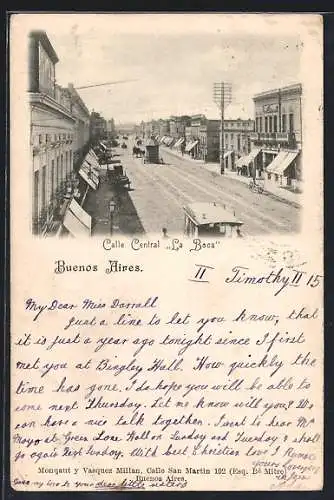 Calle Central „La Boca"
Buenos Aires.
II Timothy II 15
My Dear Miss Darrall
Just a line to let you know, that
it is just a year ago tonight since I first
met you at Bingley Hall. How quickly the
time has gone. I do hope you will be able to
come next Thursday. Let me know will you? We
can have a nice talk together. I went to hear Mr
at Green Lane Hall on Sunday and Tuesday & shall
go again next Sunday. With best Christian love I Remain
yours Lovingly
Mongaut y Vasquez Millan, Calle San Martin 192 (Esq. Bé Mitre)
Buenos Aires.
Give my love to your dear little sisters